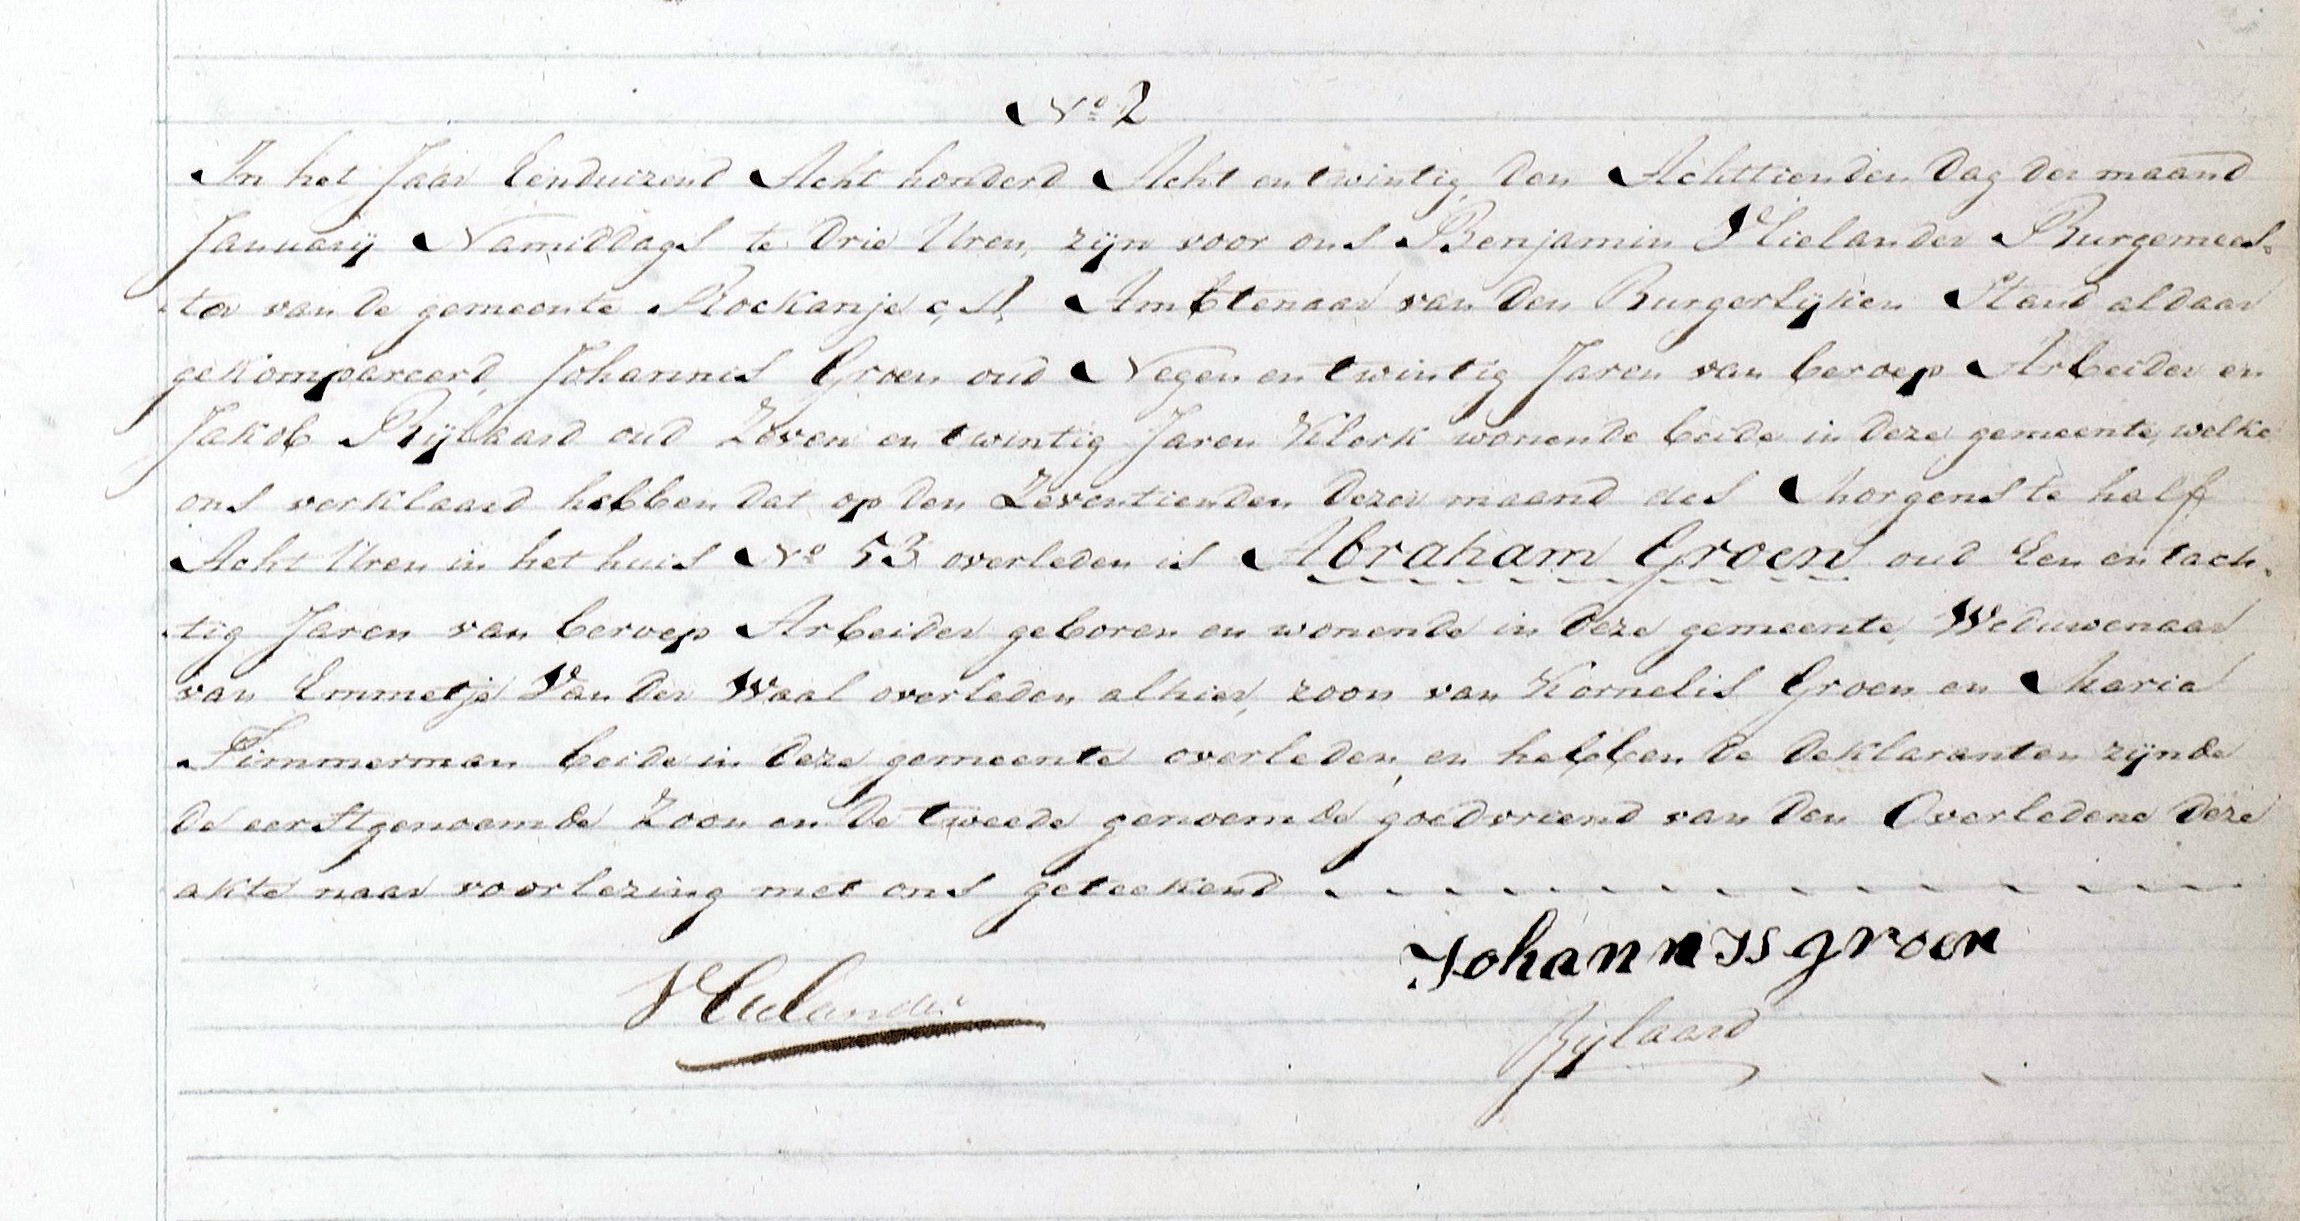 No 2
In het Jaar Eenduizend Acht honderd Acht en twintig den Achttienden Dag der maand
Januarij Namiddags te Drie Uren, zijn voor ons Benjamin Vlielander Burgemees-
ter van de gemeente Rockanje c, A, Ambtenaar van den Burgerlijken Stand aldaar
gekompareerd, Johannes Groen oud Negen en twintig Jaren van beroep Arbeider en
Jakob Rijlaard oud Zeven en twintig Jaren Klerk wonende beide in deze gemeente, welke
ons verklaard hebben dat op den Zeventienden dezer maand des Morgens te half
Acht Uren in het huis No 53 overleden is Abraham Groen oud Een en tach-
tig Jaren van beroep Arbeider geboren en wonende in deze gemeente, Weduwenaar
van Emmetje Van der Waal overleden alhier, zoon van Kornelis Groen en Maria
Timmerman beide in deze gemeente overleden, en hebben de deklaranten zijnde
de eerstgenoemde Zoon en de tweede genoemde goedvriend van den Overledene deze
akte naar voorlezing met ons geteekend
Johannis groen
Vlielander
Rijlaard